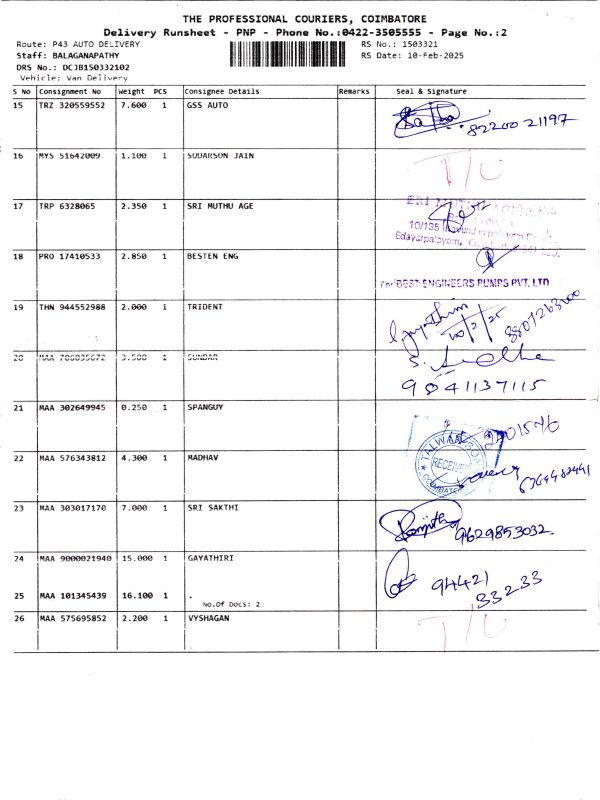 THE PROFESSIONAL COURIERS, COIMBATORE
Delivery Runsheet - PNP - Phone No.:0422-3505555 - Page No.:2
Route: P43 AUTO DELIVERY RS No.: 1503321
Staff: BALAGANAPATHY RS Date: 10-Feb-2025
DRS No.: DCJB150332102
Vehicle: Van Delivery
S No Consignment No Weight PCS Consignee Details Remarks Seal & Signature
15 TRZ 320559552 7.600 1 GSS AUTO
8220021197
16 MYS 51642009 1.100 1 SUDARSON JAIN T/C
17 TRP 6328065 2.350 1 SRI MUTHU AGE
10/135
Edayarpalayam,
18 PRO 17410533 2.850 1 BESTEN ENG
For BEST ENGINEERS PUMPS PVT. LTD
19 THN 944552988 2.000 1 TRIDENT
10/2/25
20 MAA 786835672 3.500 1 SUNDAR
9841137115
21 MAA 302649945 0.250 1 SPANGUY
22 MAA 576343812 4.300 1 MADHAV
RECEIVED
23 MAA 303017170 7.000 1 SRI SAKTHI
Ranjitha
9629853032
24 MAA 9000021940 15.000 1 GAYATHIRI
94421
33233
25 MAA 101345439 16.100 1 .
No.Of Docs: 2
26 MAA 575695852 2.200 1 VYSHAGAN T/C